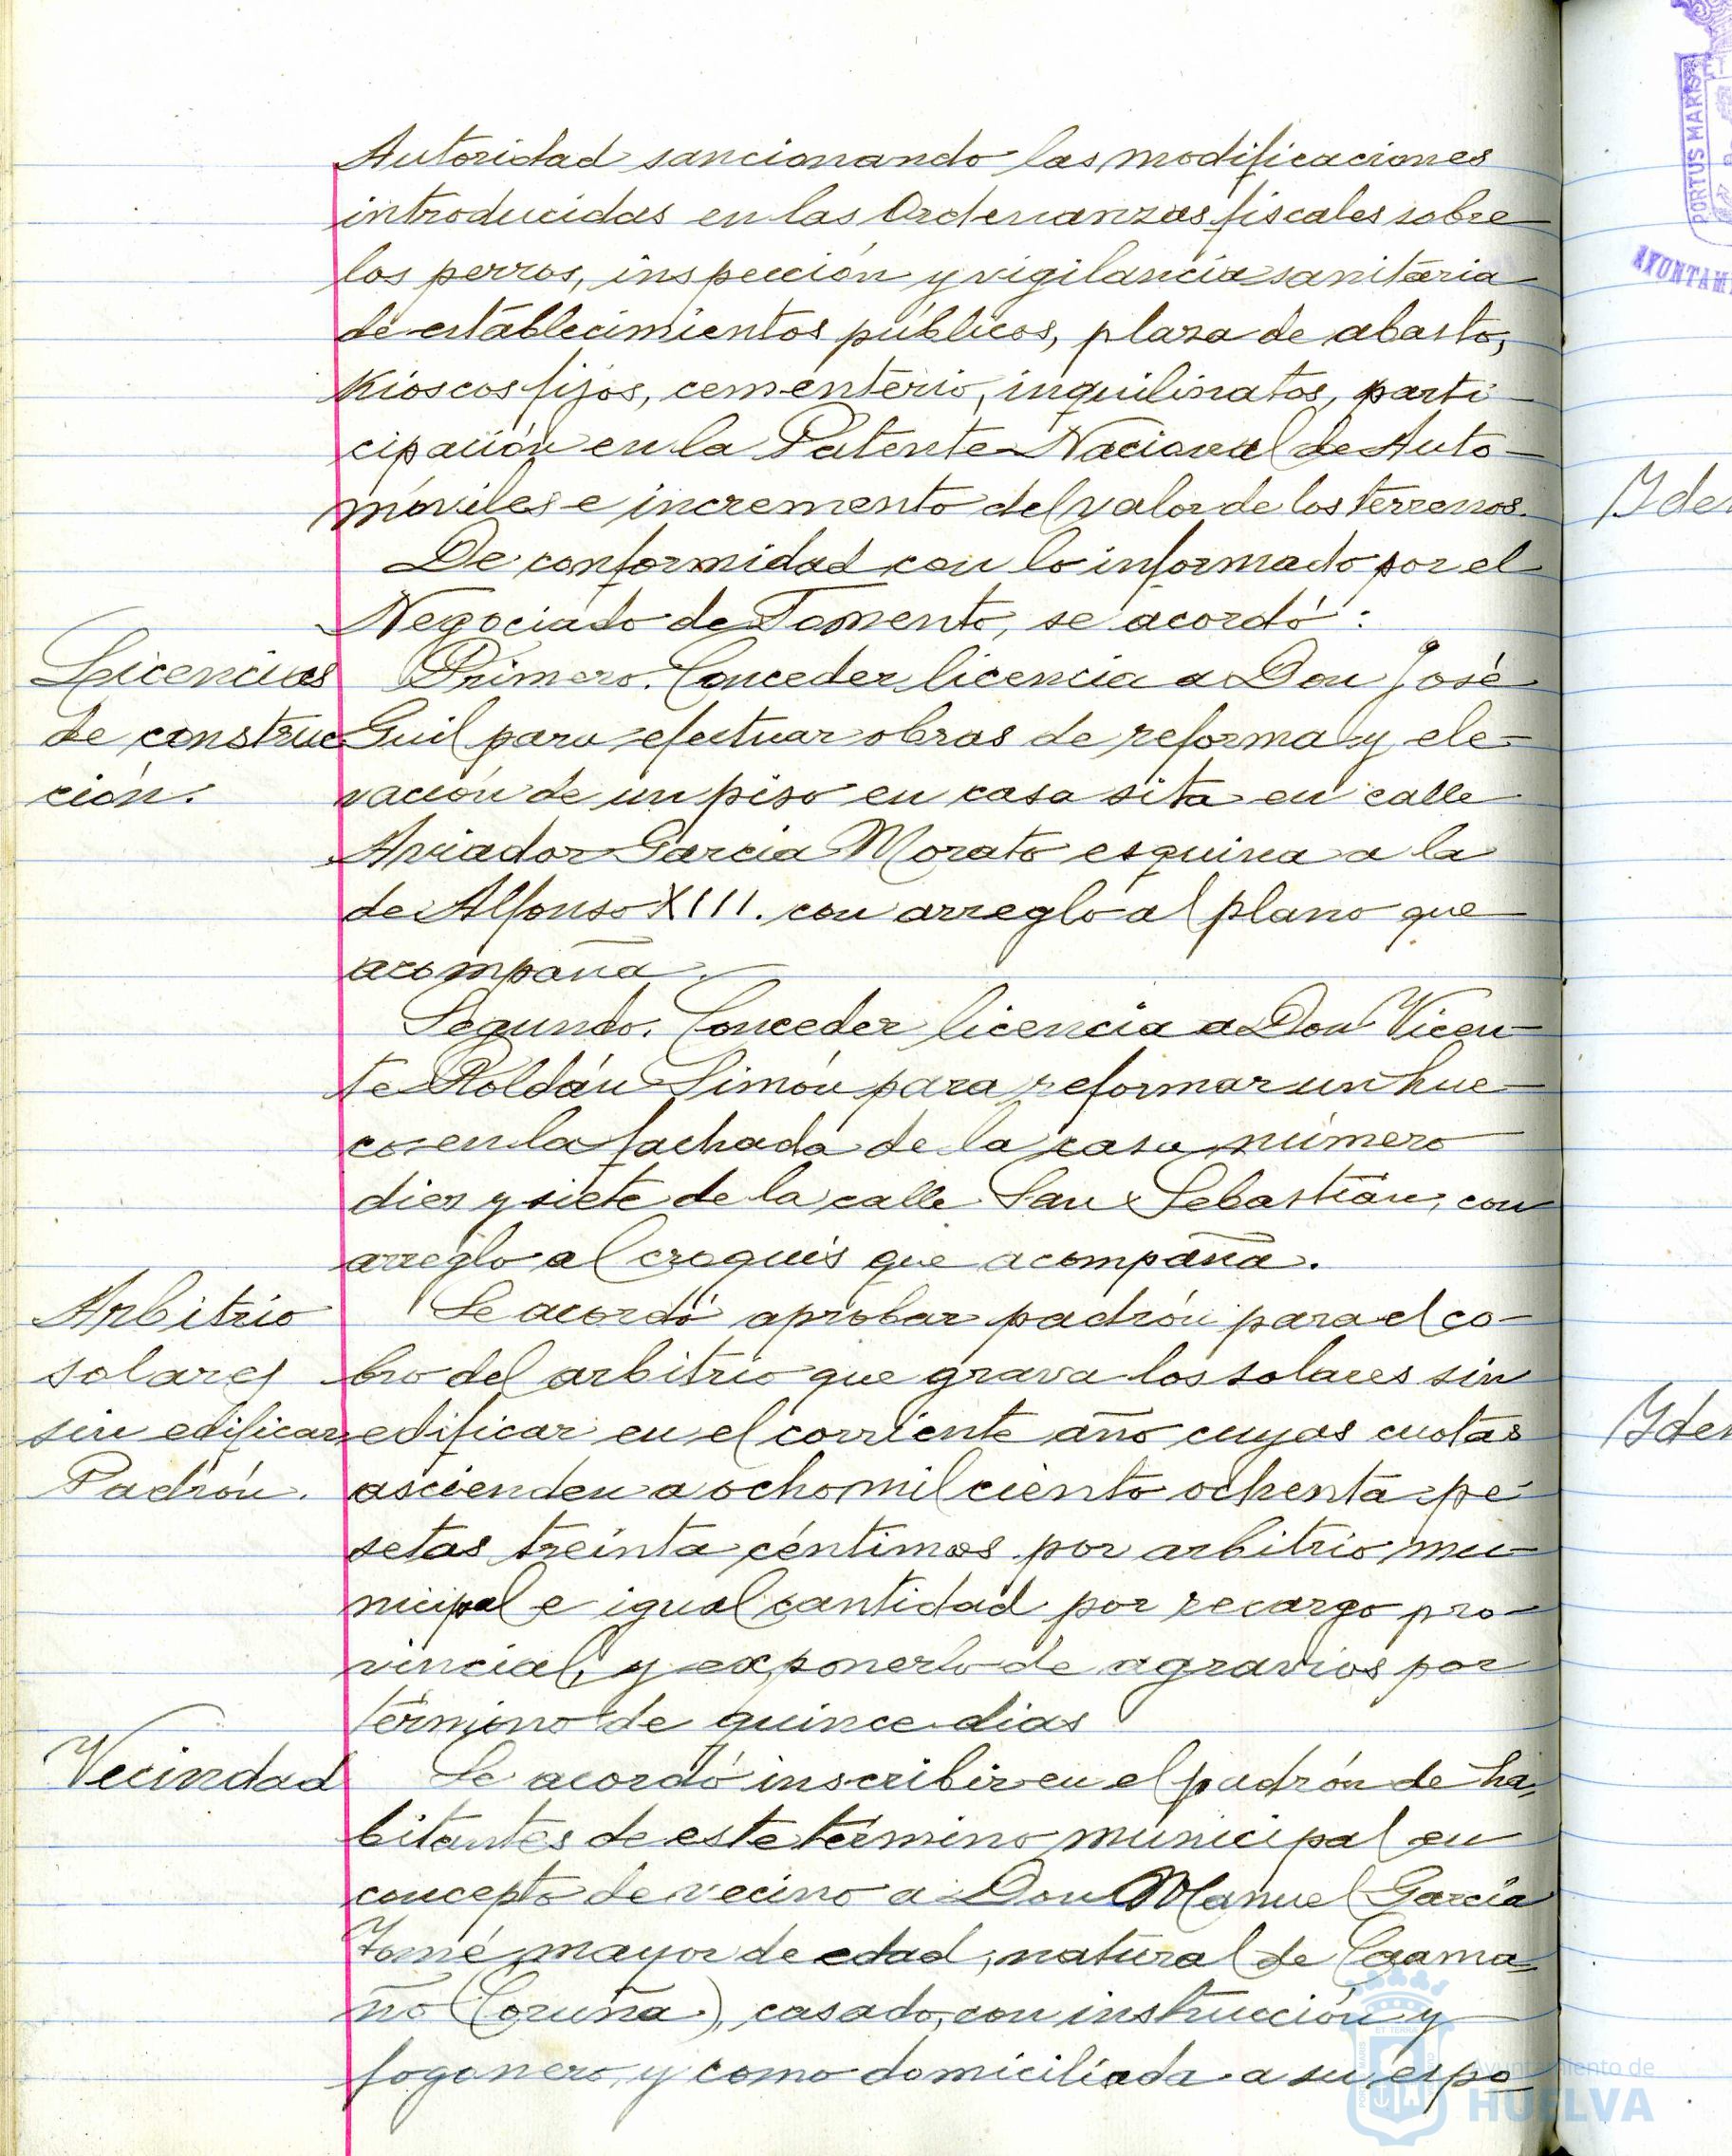 Autoridad sancionando las modificaciones
introducidas en las Ordenanzas fiscales sobre
los perros, inspección y vigilancia sanitaria
de establecimientos públicos, plaza de abasto,
Kioscos fijos, cementerio, inquilinatos, parti-
cipación en la Patente Nacional de Auto-
móviles e incremento del valor de los terrenos.
De conformidad con lo informado por el
Negociado de Fomento, se acordó:
Licencias
de construc
ción.
Primero. Conceder licencia a Don José
Guil para efectuar obras de reforma y ele-
vación de un piso en casa sita en calle
Aviador Garcia Morato esquina a la
de Alfonso XIII. con arreglo al plano que
acompaña.
Segundo. Conceder licencia a Don Vicen-
te Roldán Simón para reformar un hue-
co en la fachada de la casa número
diez y siete de la calle San Sebastián, con
arreglo al croquis que acompaña.
Arbitrio
solares
sin edificar
Padrón.
Se acordó aprobar padrón para el co-
bro del arbitrio que grava los solares sin
edificar en el corriente año cuyas cuotas
ascienden a ocho mil ciento ochenta pe-
setas treinta céntimos por arbitrio mu-
nicipal e igual cantidad por recargo pro-
vincial, y exponerlo de agravios por
término de quince dias
Vecindad
Se acordó inscribir en el padrón de ha-
bitantes de este término municipal en
concepto de vecino a Don Manuel García
Tomé, mayor de edad, natural de Caama-
ño (Coruña), casado, con instrucción y
fogonero, y como domiciliada a su espo
Yde
Yde
PORTUS MARIS ET
AYUNTAM
Ayuntamiento de
HUELVA